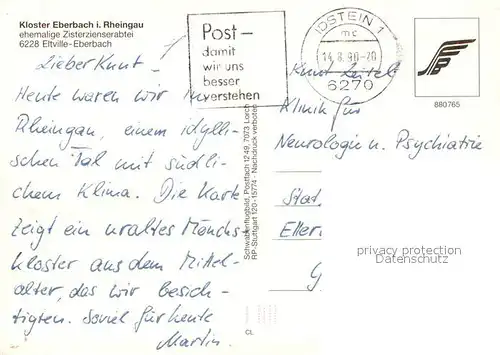 Kloster Eberbach i. Rheingau
ehemalige Zisterzienserabtei
6228 Eltville-Eberbach
Post-
damit
wir uns
besser
verstehen
IDSTEIN 1
mc
14.8.90-20
6270
880765
Lieber Kunt –
Heute waren wir im
Rheingau, einem idylli-
schen Tal mit südli-
chem Klima. Die Karte
zeigt ein uraltes Mönchs-
kloster aus dem Mittel-
alter, das wir besich-
tigten. Soviel für heute
Martin.
Schwabenflugbild, Postfach 1249, 7073 Lorch
RP-Stuttgart 120-15774 · Nachdruck verboten
CL
Klinik für
Neurologie u. Psychiatrie
Stat
Eller
privacy protection
Datenschutz